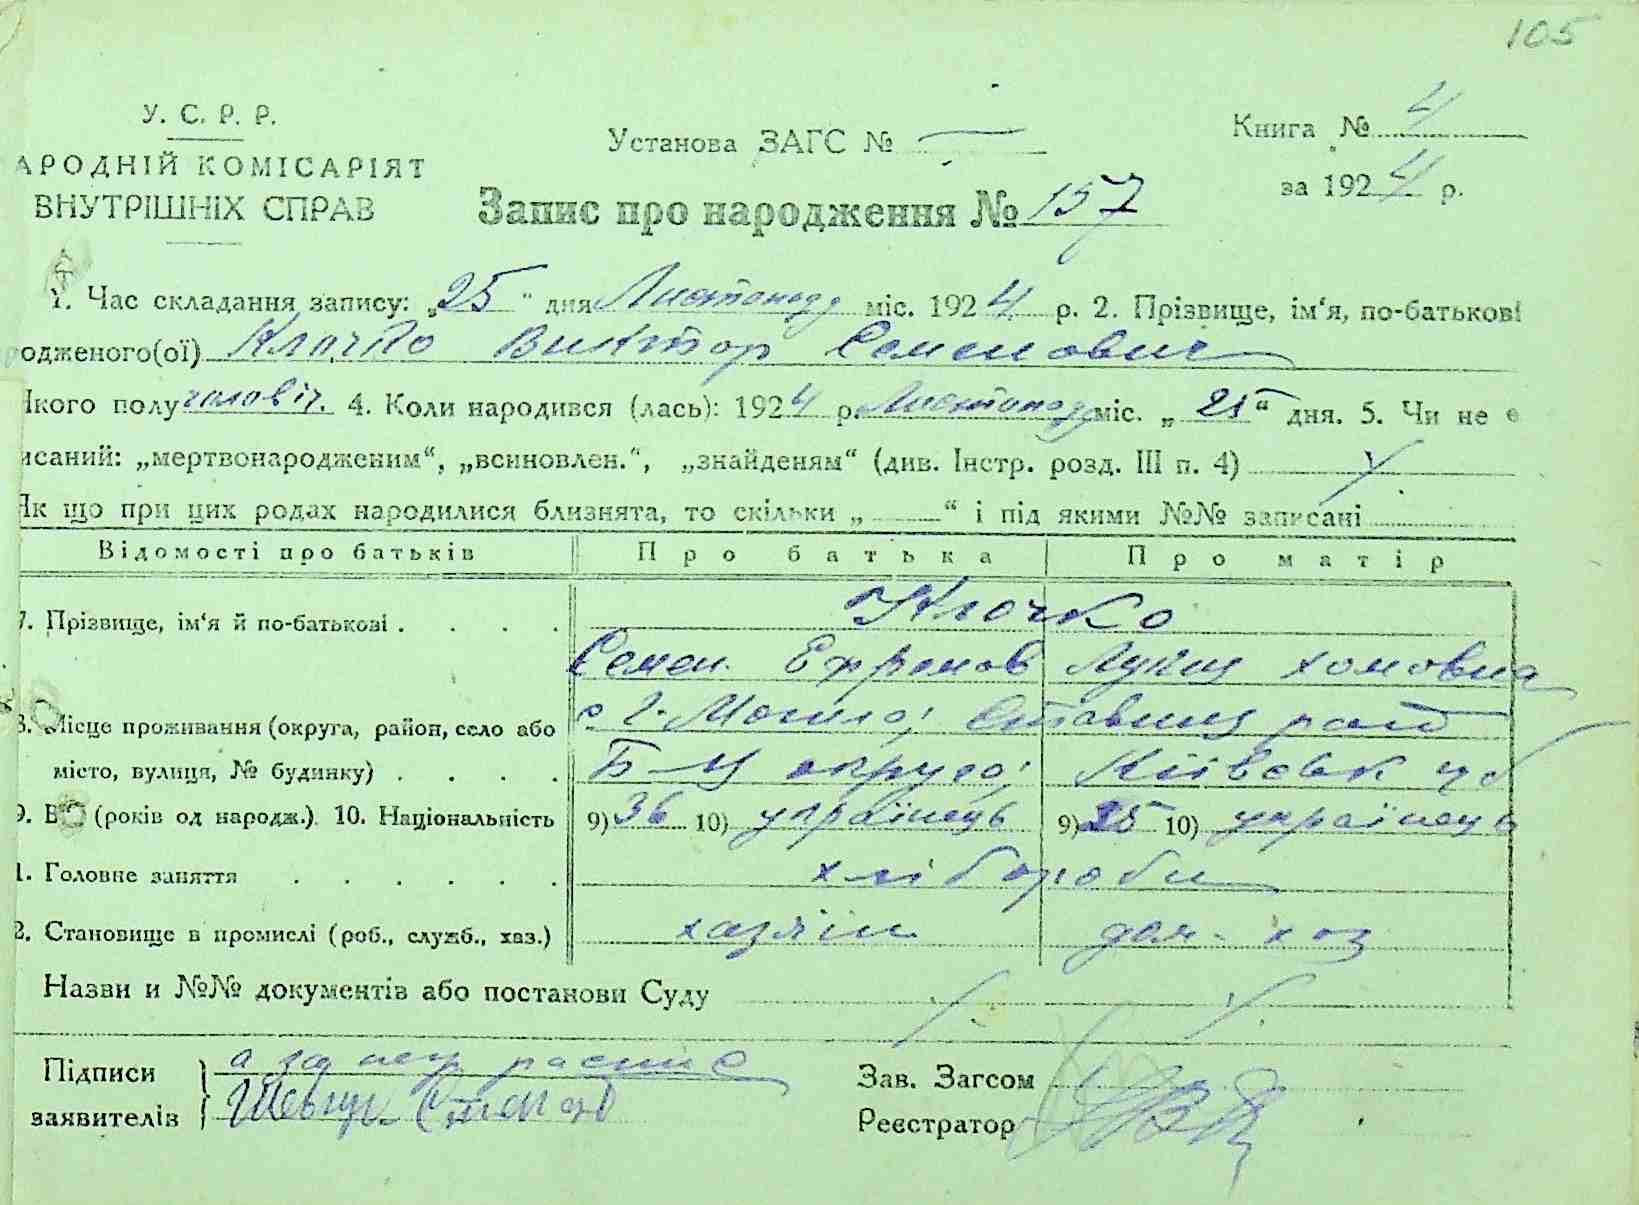 105
У. С. Р. Р.
АРОДНІЙ КОМІСАРІЯТ
ВНУТРІШНІХ СПРАВ
Установа ЗАГС № —
Книга № 4
за 1924 р.
Запис про народження № 157
1. Час складання запису: „25" дня Листопада міс. 1924 р. 2. Прізвище, ім'я, по-батькові
одженого(ої) Клочко Виктор Семенович
Якого полу чоловіч. 4. Коли народився (лась): 1924 р. Листопада міс. „25" дня. 5. Чи не є
исаний: „мертвонародженим", „всиновлен.", „знайденям" (див. Інстр. розд. III п. 4)
Як що при цих родах народилися близнята, то скільки „ " і під якими №№ записані
Відомості про батьків Про батька Про матір
7. Прізвище, ім'я й по-батькові . . . . Клочко
Семен Ефремов Лукія хомовна
8. Місце проживання (округа, район, село або с Г. Могила; Ставищ рай
місто, вулиця, № будинку) . . . . Б-Ц округа; Київськ губ
9. В (років од народж.) 10. Національність 9) 36 10) українець 9) 35 10) українець
1. Головне заняття . . . . . . хлібороби
2. Становище в промислі (роб., служб., хаз.) хазяїн дом. хоз
Назви и №№ документів або постанови Суду
Підписи а за неґр роспис
заявителів Шевчук Степан
Зав. Загсом
Реєстратор